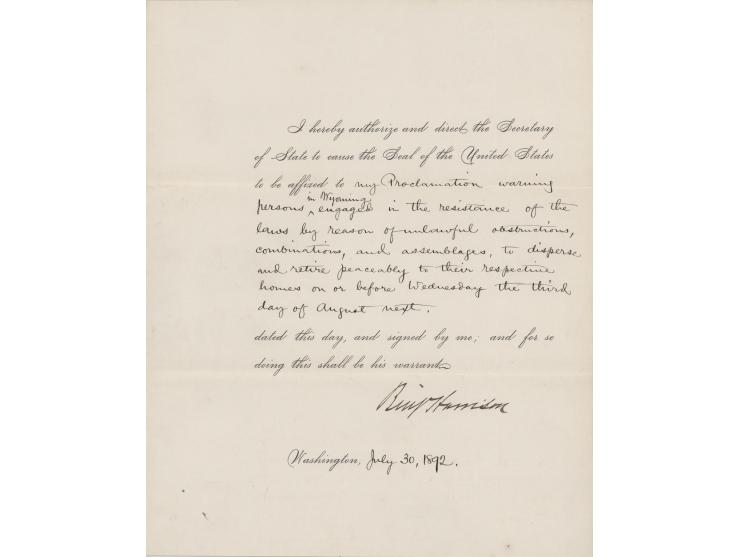 I hereby authorize and direct the Secretary
of State to cause the Seal of the United States
to be affixed to my Proclamation warning
in Wyoming
persons ^ engaged in the resistance of the
laws by reason of unlawful obstructions,
combinations, and assemblages, to disperse
and retire peaceably to their respective
homes on or before Wednesday the third
day of August next.
dated this day, and signed by me; and for so
doing this shall be his warrant.
Benj Harrison
Washington, July 30, 1892.